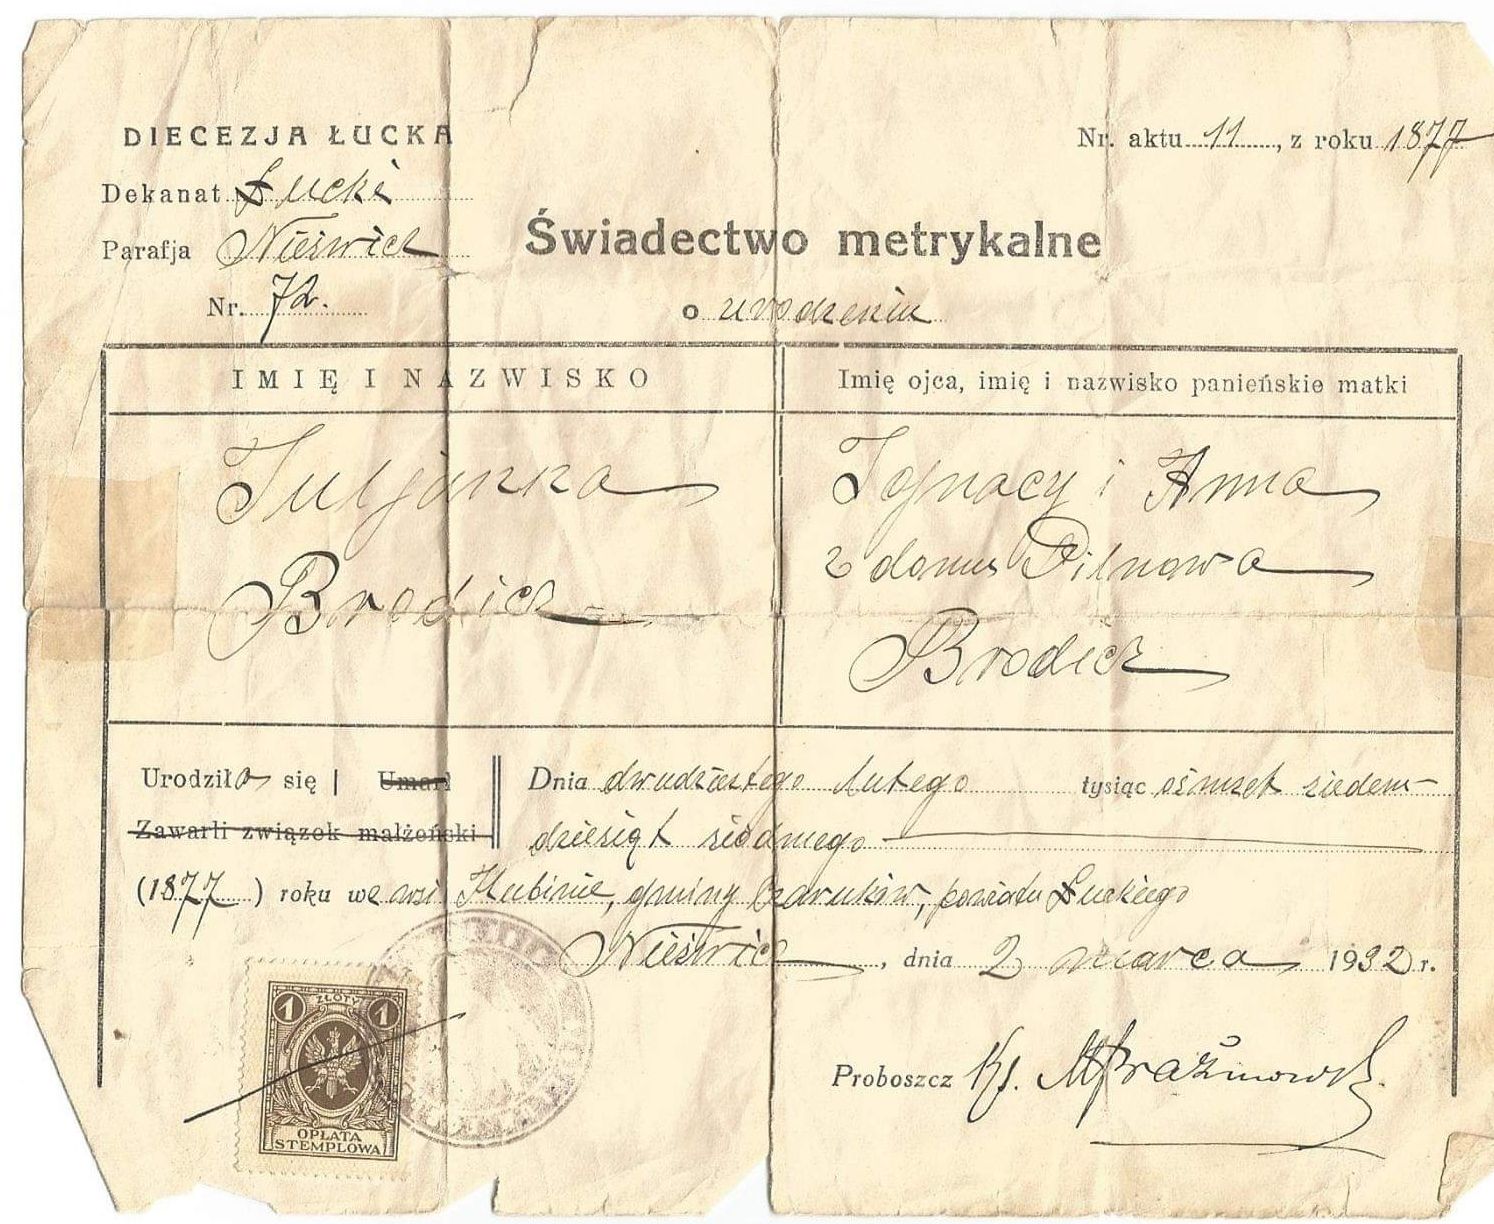 DIECEZJA ŁUCKA
Nr. aktu 11, z roku 1877
Dekanat Łucki
Parafja Nieświcz
Nr. 72.
Świadectwo metrykalne
o urodzeniu
IMIĘ I NAZWISKO
Imię ojca, imię i nazwisko panieńskie matki
Juljanna
Brodicz
Ignacy i Anna
z domu Pilnowa
Brodicz
Urodziła się | Umarł
Zawarli związek małżeński
Dnia dwudziestego lutego tysiąc ośmset siedem-
dziesiąt siódmego
(1877) roku we wsi Hubinie, gminy Czaruków, powiatu Łuckiego
Nieświcz, dnia 2 marca 1932 r.
Proboszcz Ks.
1 ZŁOTY 1
OPŁATA
STEMPLOWA